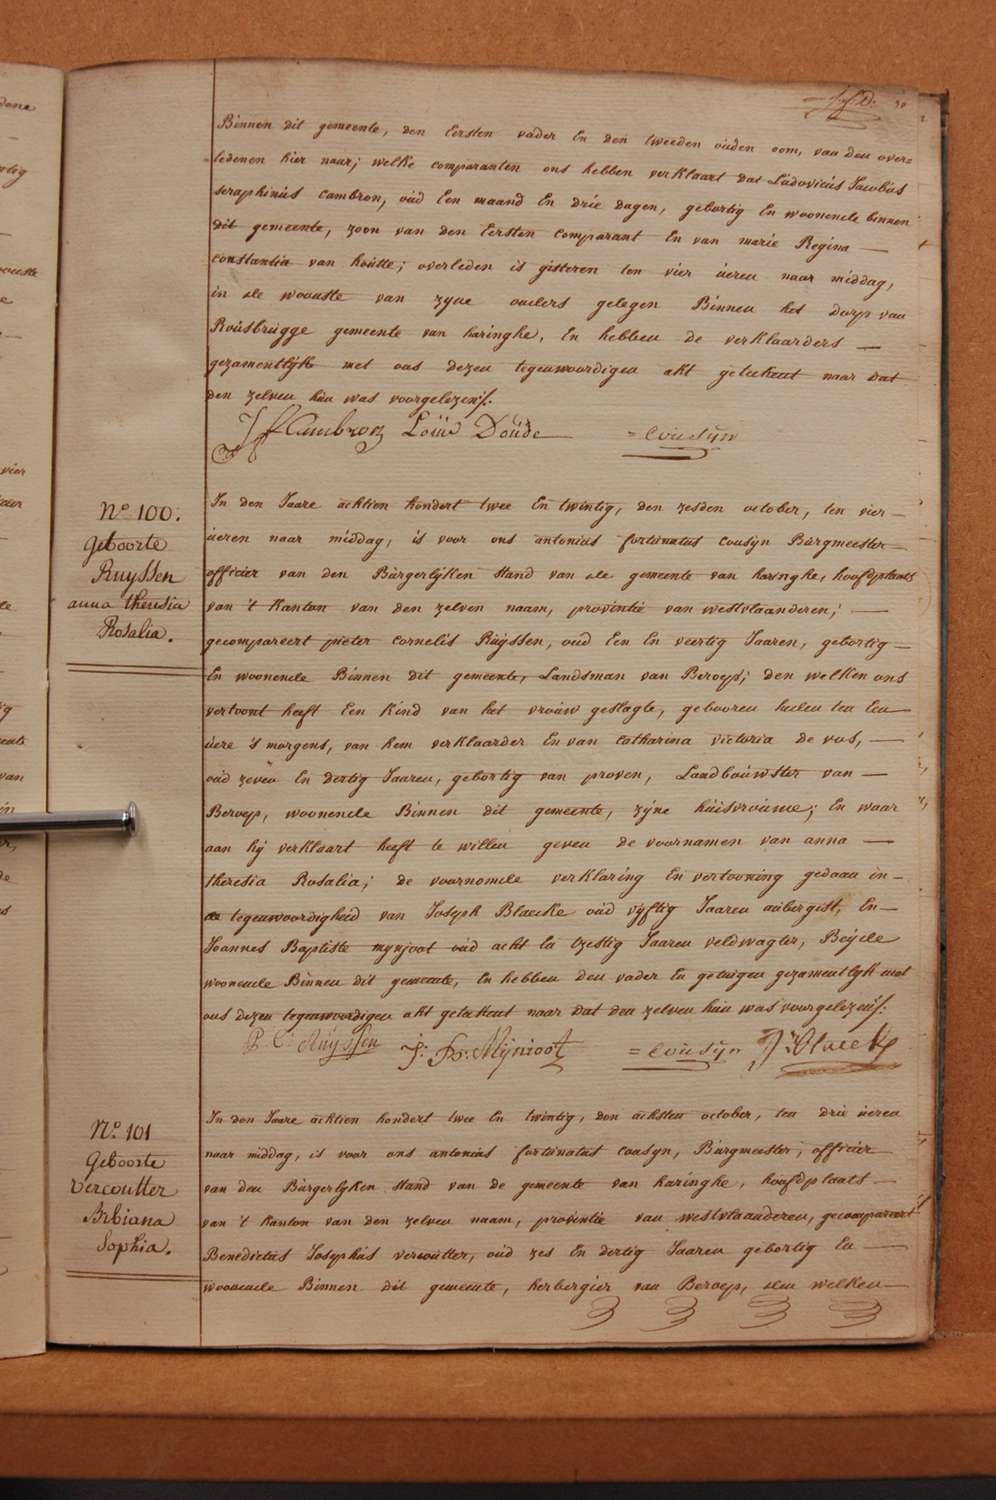 Binnen dit gemeente, den Eersten vader En den tweeden ouden oom, van den over=
ledenen hier naar; welke comparanten ons hebben verklaart dat Ludovicus Jacobus
seraphinus Cambron, oud Een maand En drie dagen, gebortig En woonende binnen
dit gemeente, zoon van den Eersten comparant En van marie Regina —
constantia van houtte; overleden is gisteren ten vier ueren naar middag,
in de woonste van zyne ouders gelegen Binnen het dorp van
Rousbrugge gemeente van haringhe, En hebben de verklaarders —
gezamentlyk met ons dezen tegenwoordigen akt geteekent naar dat
den zelven hun was voorgelezen/.
Cambron Louis Doude = Cousyn
N° 100.
Geboorte
Ruyssen
anna theresia
Rosalia.
In den Jaare achtien hondert twee En twintig, den zesden october, ten vier —
ueren naar middag, is voor ons antonius fortunatus cousyn Burgmeester —
officier van den Burgerlyken stand van de gemeente van haringhe, hoofdplaats
van 't kanton van den zelven naam, provintie van westvlaanderen; —
gecompareert pieter cornelis Ruyssen, oud Een En veertig Jaaren, gebortig —
En woonende Binnen dit gemeente, Landsman van Beroep; den welken ons
vertoont heeft Een kind van het vrouw geslagte, gebooren heden ten Een —
uere 's morgens, van hem verklaarder En van Catharina victoria de vos, —
oud zeven En dertig Jaaren, gebortig van proven, Landbouwster van —
Beroep, woonende Binnen dit gemeente, zyne huisvrouwe; En waar
aan hy verklaart heeft te willen geven de voornamen van anna —
theresia Rosalia; de voornomde verklaring En vertooning gedaan in —
de tegenwoordigheid van Joseph Blaeke oud vyftig Jaaren aubergist, En —
Joannes Baptiste mynjoot oud acht En tzestig Jaaren veldwagter, Beyde
woonende Binnen dit gemeente, En hebben den vader En getuigen gezamentlyk met
ons dezen tegenwoordigen akt geteekent naar dat den zelven hun was voorgelezen/.
P. C. Ruyssen J: B: Mijnioot = Cousyn J: Blaeke
N° 101
Geboorte
vercoutter
Bibiana
Sophia.
In den Jaare achtien hondert twee En twintig, den achsten october, ten drie ueren
naar middag, is voor ons antonius fortunatus cousyn, Burgmeester, officier
van den Burgerlyken stand van de gemeente van haringhe, hoofdplaats —
van 't kanton van den zelven naam, provintie van westvlaanderen, gecompareert
Benedictus Josephus vercoutter, oud zes En dertig Jaaren gebortig En —
woonende Binnen dit gemeente, herbergier van Beroep, den welken —